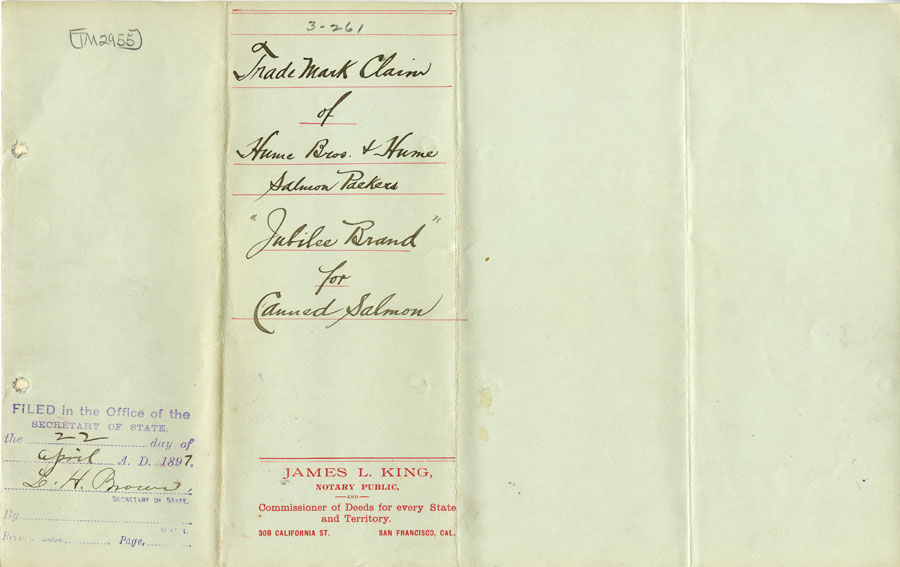 TM2955
3-261
Trade Mark Claim
of
Hume Bros. & Hume
Salmon Packers
"Jubilee Brand"
for
Canned Salmon
FILED in the Office of the
SECRETARY OF STATE.
the 22 day of
April A. D. 1897.
L. H. Brown.
SECRETARY OF STATE.
By
Page,
JAMES L. KING,
NOTARY PUBLIC,
—AND—
Commissioner of Deeds for every State
and Territory.
308 CALIFORNIA ST. SAN FRANCISCO, CAL.